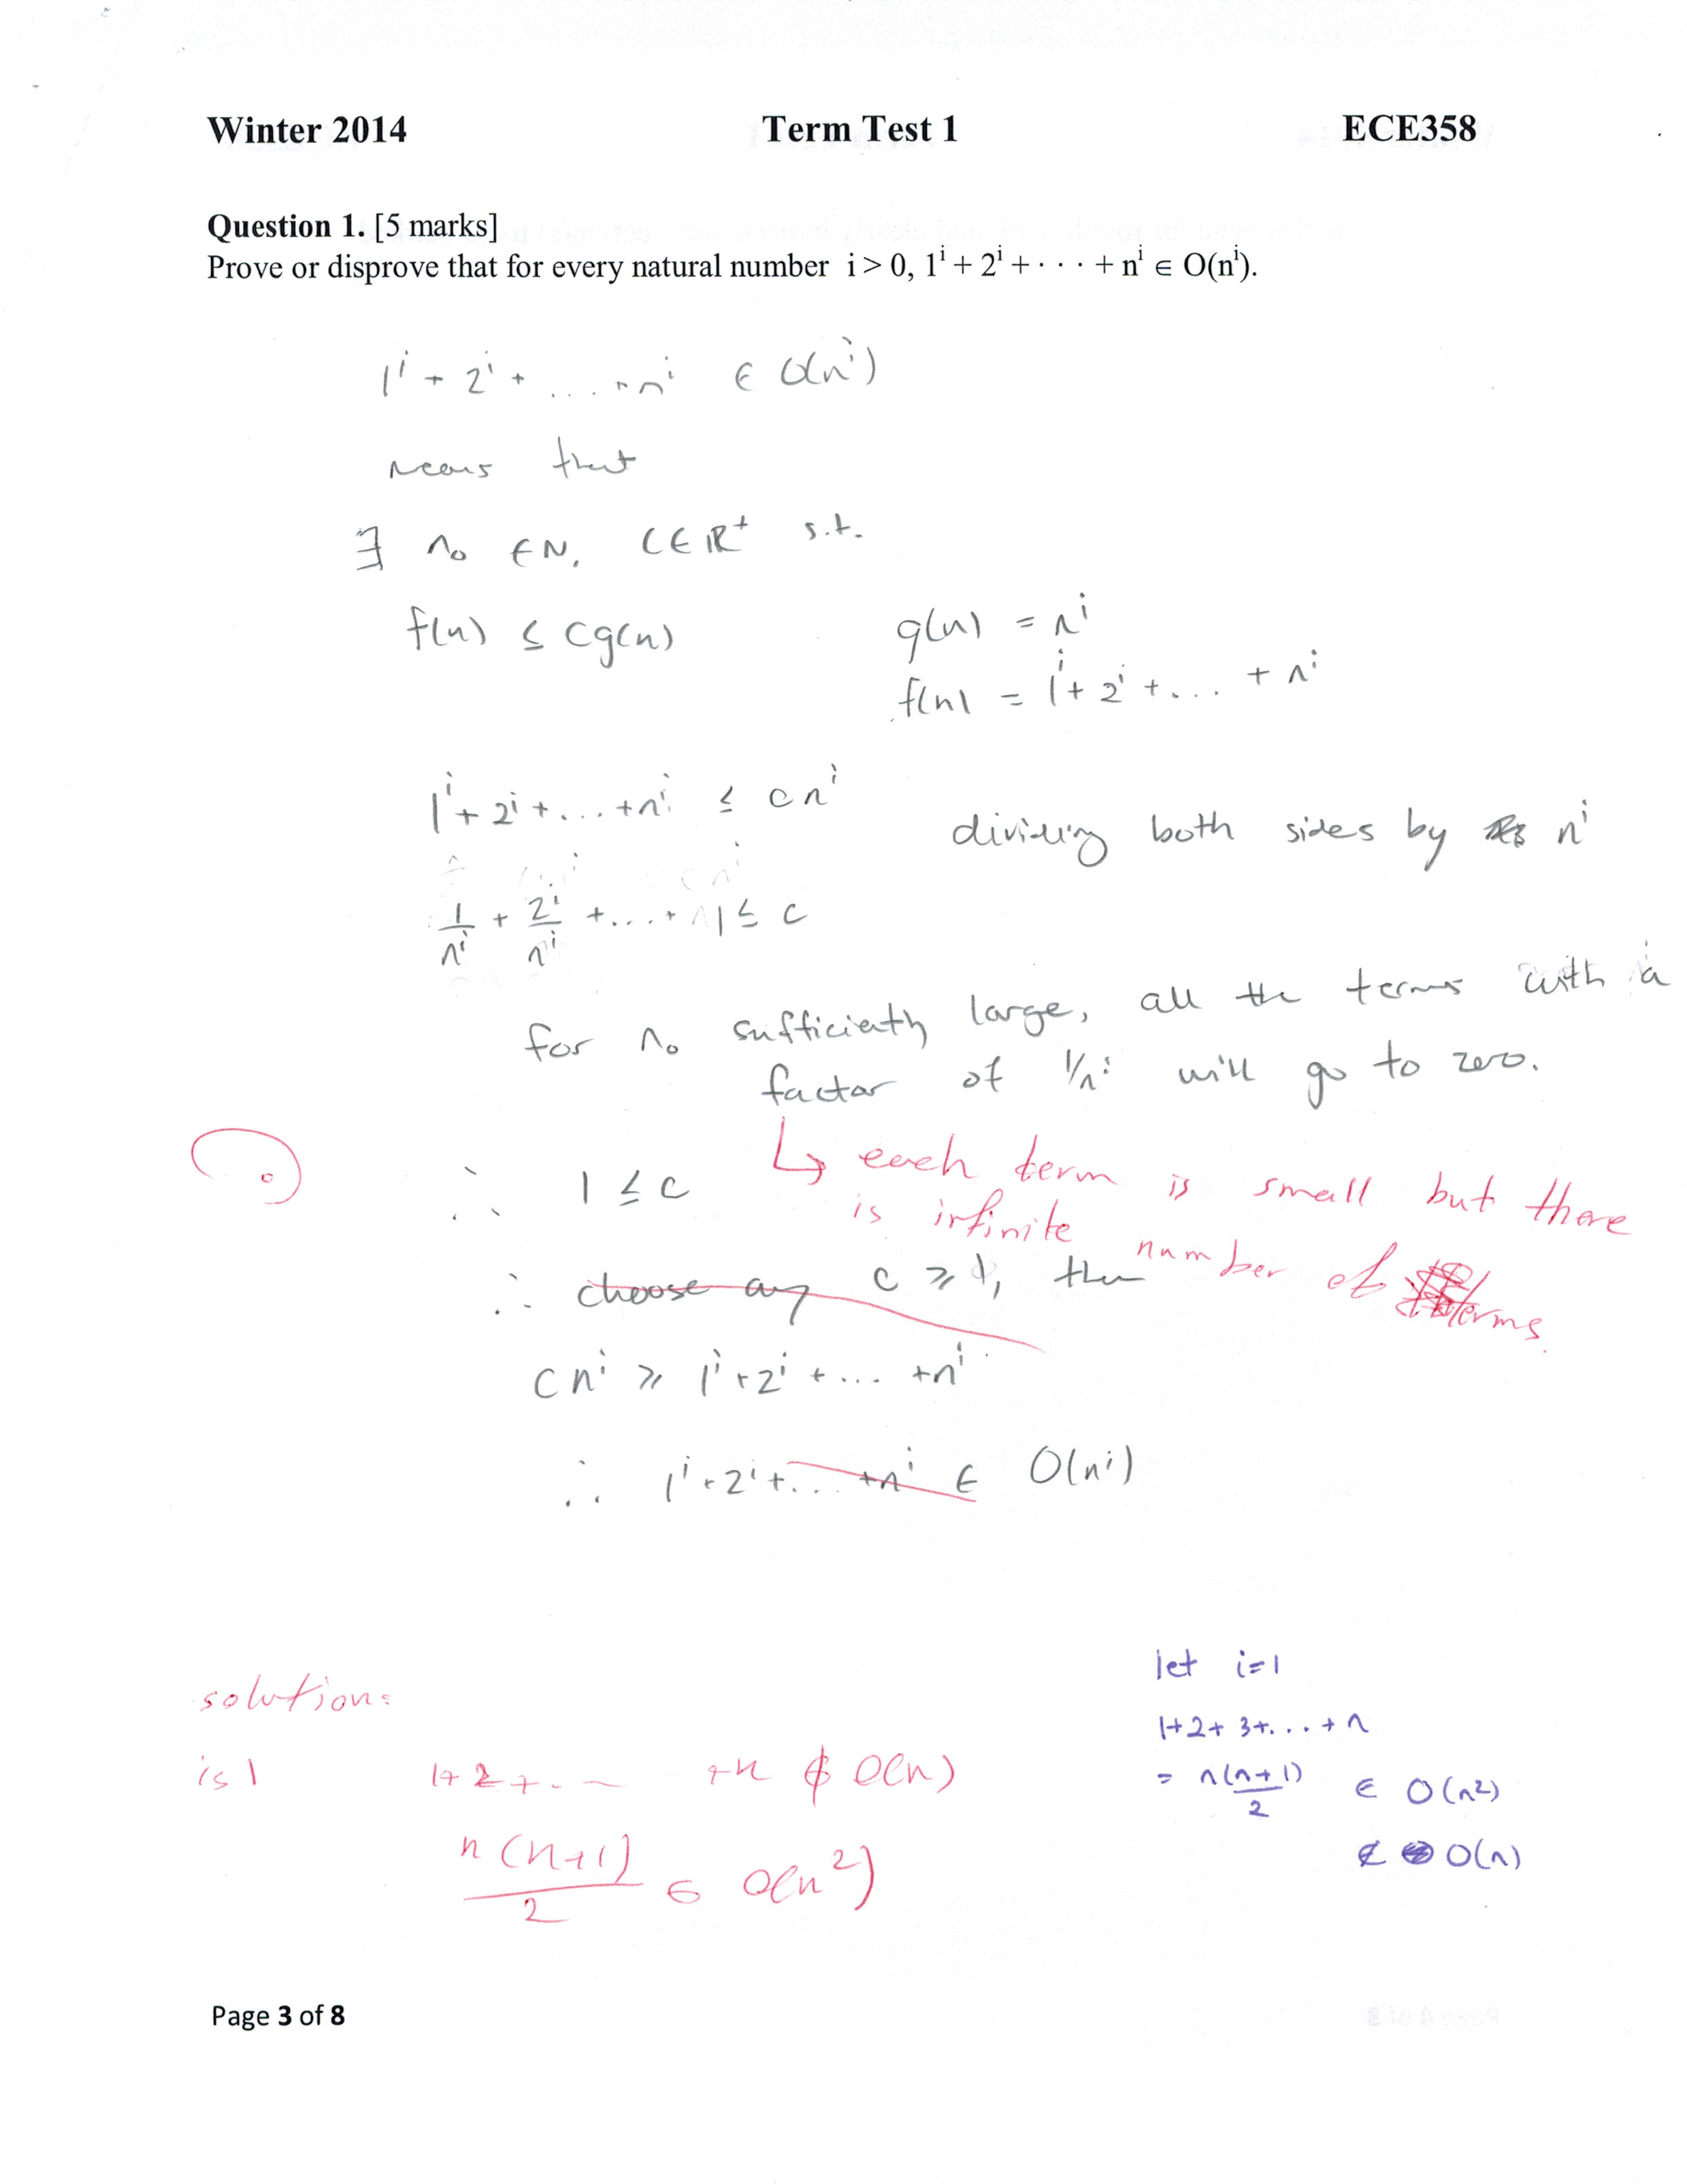 Winter 2014 Term Test 1 ECE358
Question 1. [5 marks]
Prove or disprove that for every natural number i > 0, 1^i + 2^i + · · · + n^i ∈ O(n^i).
1^i + 2^i + .... + n^i ∈ O(n^i)
means that
∃ n₀ ∈ N, C ∈ ℝ⁺ s.t.
f(n) ≤ cg(n) g(n) = n^i
f(n) = 1^i + 2^i + ... + n^i
1^i + 2^i + ... + n^i ≤ cn^i
dividing both sides by n^i
1/n^i + 2^i/n^i + .... + 1 ≤ c
for n₀ sufficiently large, all the terms with a
factor of 1/n^i will go to zero.
↳ each term is small but there
is infinite number of terms.
∴ 1 ≤ c
∴ choose any c ≥ 1, then
cn^i ≥ 1^i + 2^i + ... + n^i
∴ 1^i + 2^i + ... + n^i ∈ O(n^i)
solution:
is 1 1+2+... +n ∉ O(n)
n(n+1)/2 ∈ O(n²)
let i=1
1+2+3+...+n
= n(n+1)/2 ∈ O(n²)
∉ O(n)
Page 3 of 8